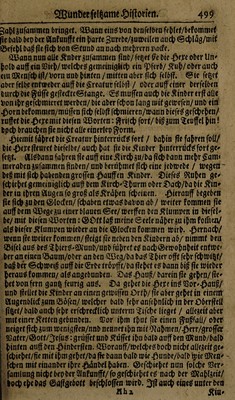 Wunderseltzame Historien. 499
Zahl zusammen bringet. Wann eins von denselben fehlet/ bekommet
sie bald bey der Ankunfft ein harte Zurede/ zuweilen auch Schläg/ mit
Befehl daß sie sich von Stund an nach mehrern
Wann nun alle Kinder zusammen sind/ setzet sie die Hexe oder Un-
hold auf ein Vieh/ welches gemeiniglich ein Pferd/ Kuh/ oder auch
ein Mensch ist/ vorn und hinten/ mitten aber sich selbst. Sie setzet
aber selbe entweder auf die Creatur selbst/ oder auf einer derselben
durch die Füsse gesteckte Stangen. Es müssen auch die Kinder erst alle
von ihr geschmieret werden/ die aber schon lang mit gewesen/ und ein
Horn bekommen/ müssen sich selbst schmieren/ wann dieses geschehen/
ruffet die Hexe mit diesen Worten: Friesch fort/ biß zum Teuffel hin
doch brauchen sie nicht alle einerley Form.
Hiemit fähret die Creatur hinterrücks fort/ dahin sie fahren soll/
die Hexe steuret dieselbe/ auch hat sie die Kinder hinterrücks fort ge-
setzt. Alsdann fahren sie auf eine Kirch zu/ da sich dann mehr Cam-
meraden zusammen finden/ und berühmet sich eine jedwede/
daß mit sich habenden grossen Hauffen Kinder. Dieses Ruhen ge-
schiehet gemeiniglich auf dem Kirch-Thurm oder Dach/ da die Kin-
der in ihren Augen so groß als Krähen scheinen. Hierauff begeben
sie sich zu den Glocken/ schaben etwas davon ab/ weiter kommen sie
auf dem Wege zu einer lauen See/ werffen den Klumpen in dieselbe/
mit diesen Worten: GOtt laß meine Seele näher zu ihm kommen/
als dieser Klumpen wieder an die Glocken kommen wird. Hernach/
wenn sie weiter kommen/ steigt sie neben den Kindern ab/ nimmt den
Geisel aus des Thiers-Mund/ und führet es nach Gewohnheit entwe-
der an einen Baum/ oder an den Weg/ da das Thier offt sehr schwitzt/
daß der Schweiß auf die Erde fleust/ da stehet es dann biß sie wieder
heraus kommen/ als angebunden. Das Hauß/ darein sie gehen/ sie-
het von fern gantz feurig aus. Da gehet die Hexe ins Vor-Hauß/
und stellet die Kinder an einen gewissen Orth/ sie aber gehet in einem
Augenblick zum Bösen/ welcher bald sehr ansehnlich in der Oberstell
sitzet/ bald auch sehr erschrecklich unterm Tische lieget/ alleseit aber
mit einer Ketten gebunden. Vor ihm thut sie einen Fußfall/ oder
neiget sich zum wenigsten/ und nennet ihn mit Nahmen/ Herr/ grosser
Vater/ Gott/ Jesus: grüsset und küsset ihn bald auf den Mund/ bald
hinten auf den Hindersten. Worauf/ welches doch nicht allezeit ge-
schiehet/ sie mit ihm gehet/ da sie dann bald wie Hunde/ bald wie Men-
schen mit einander ihre Händel haben. Geschiehet nun solche Ver-
samlung nicht bey der Ankunfft/ so geschiehet es nach der Mahlzeit/
doch ehe das Gastgebott beschlossen wird. Ist auch eines unter den
Kin-